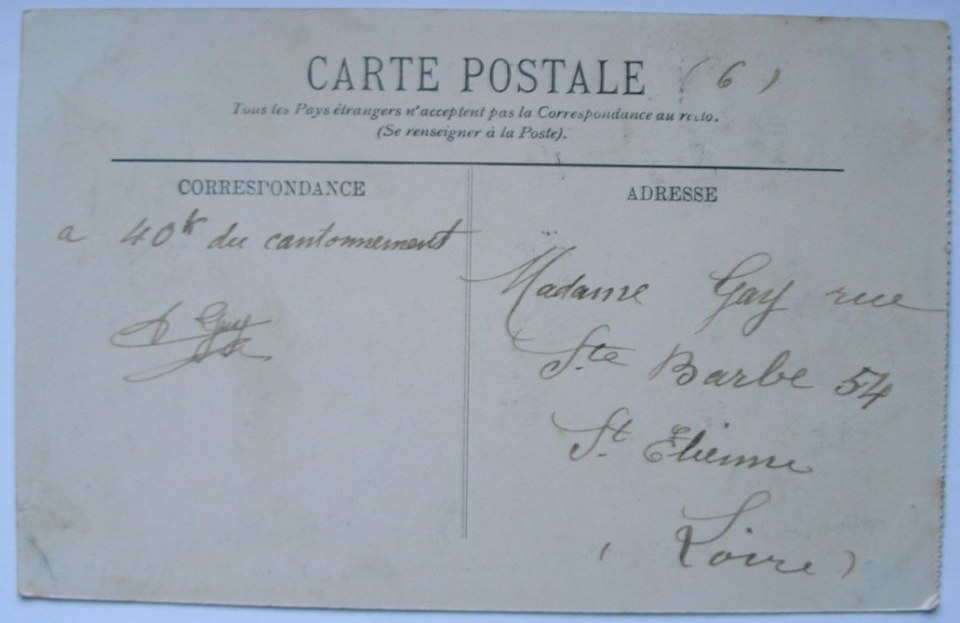 CARTE POSTALE (6)
Tous les Pays étrangers n'acceptent pas la Correspondance au recto.
(Se renseigner à la Poste).
CORRESPONDANCE
a 40k du cantonnement
Gay
ADRESSE
Madame Gay rue
Ste Barbe 54
St Etienne
(Loire)